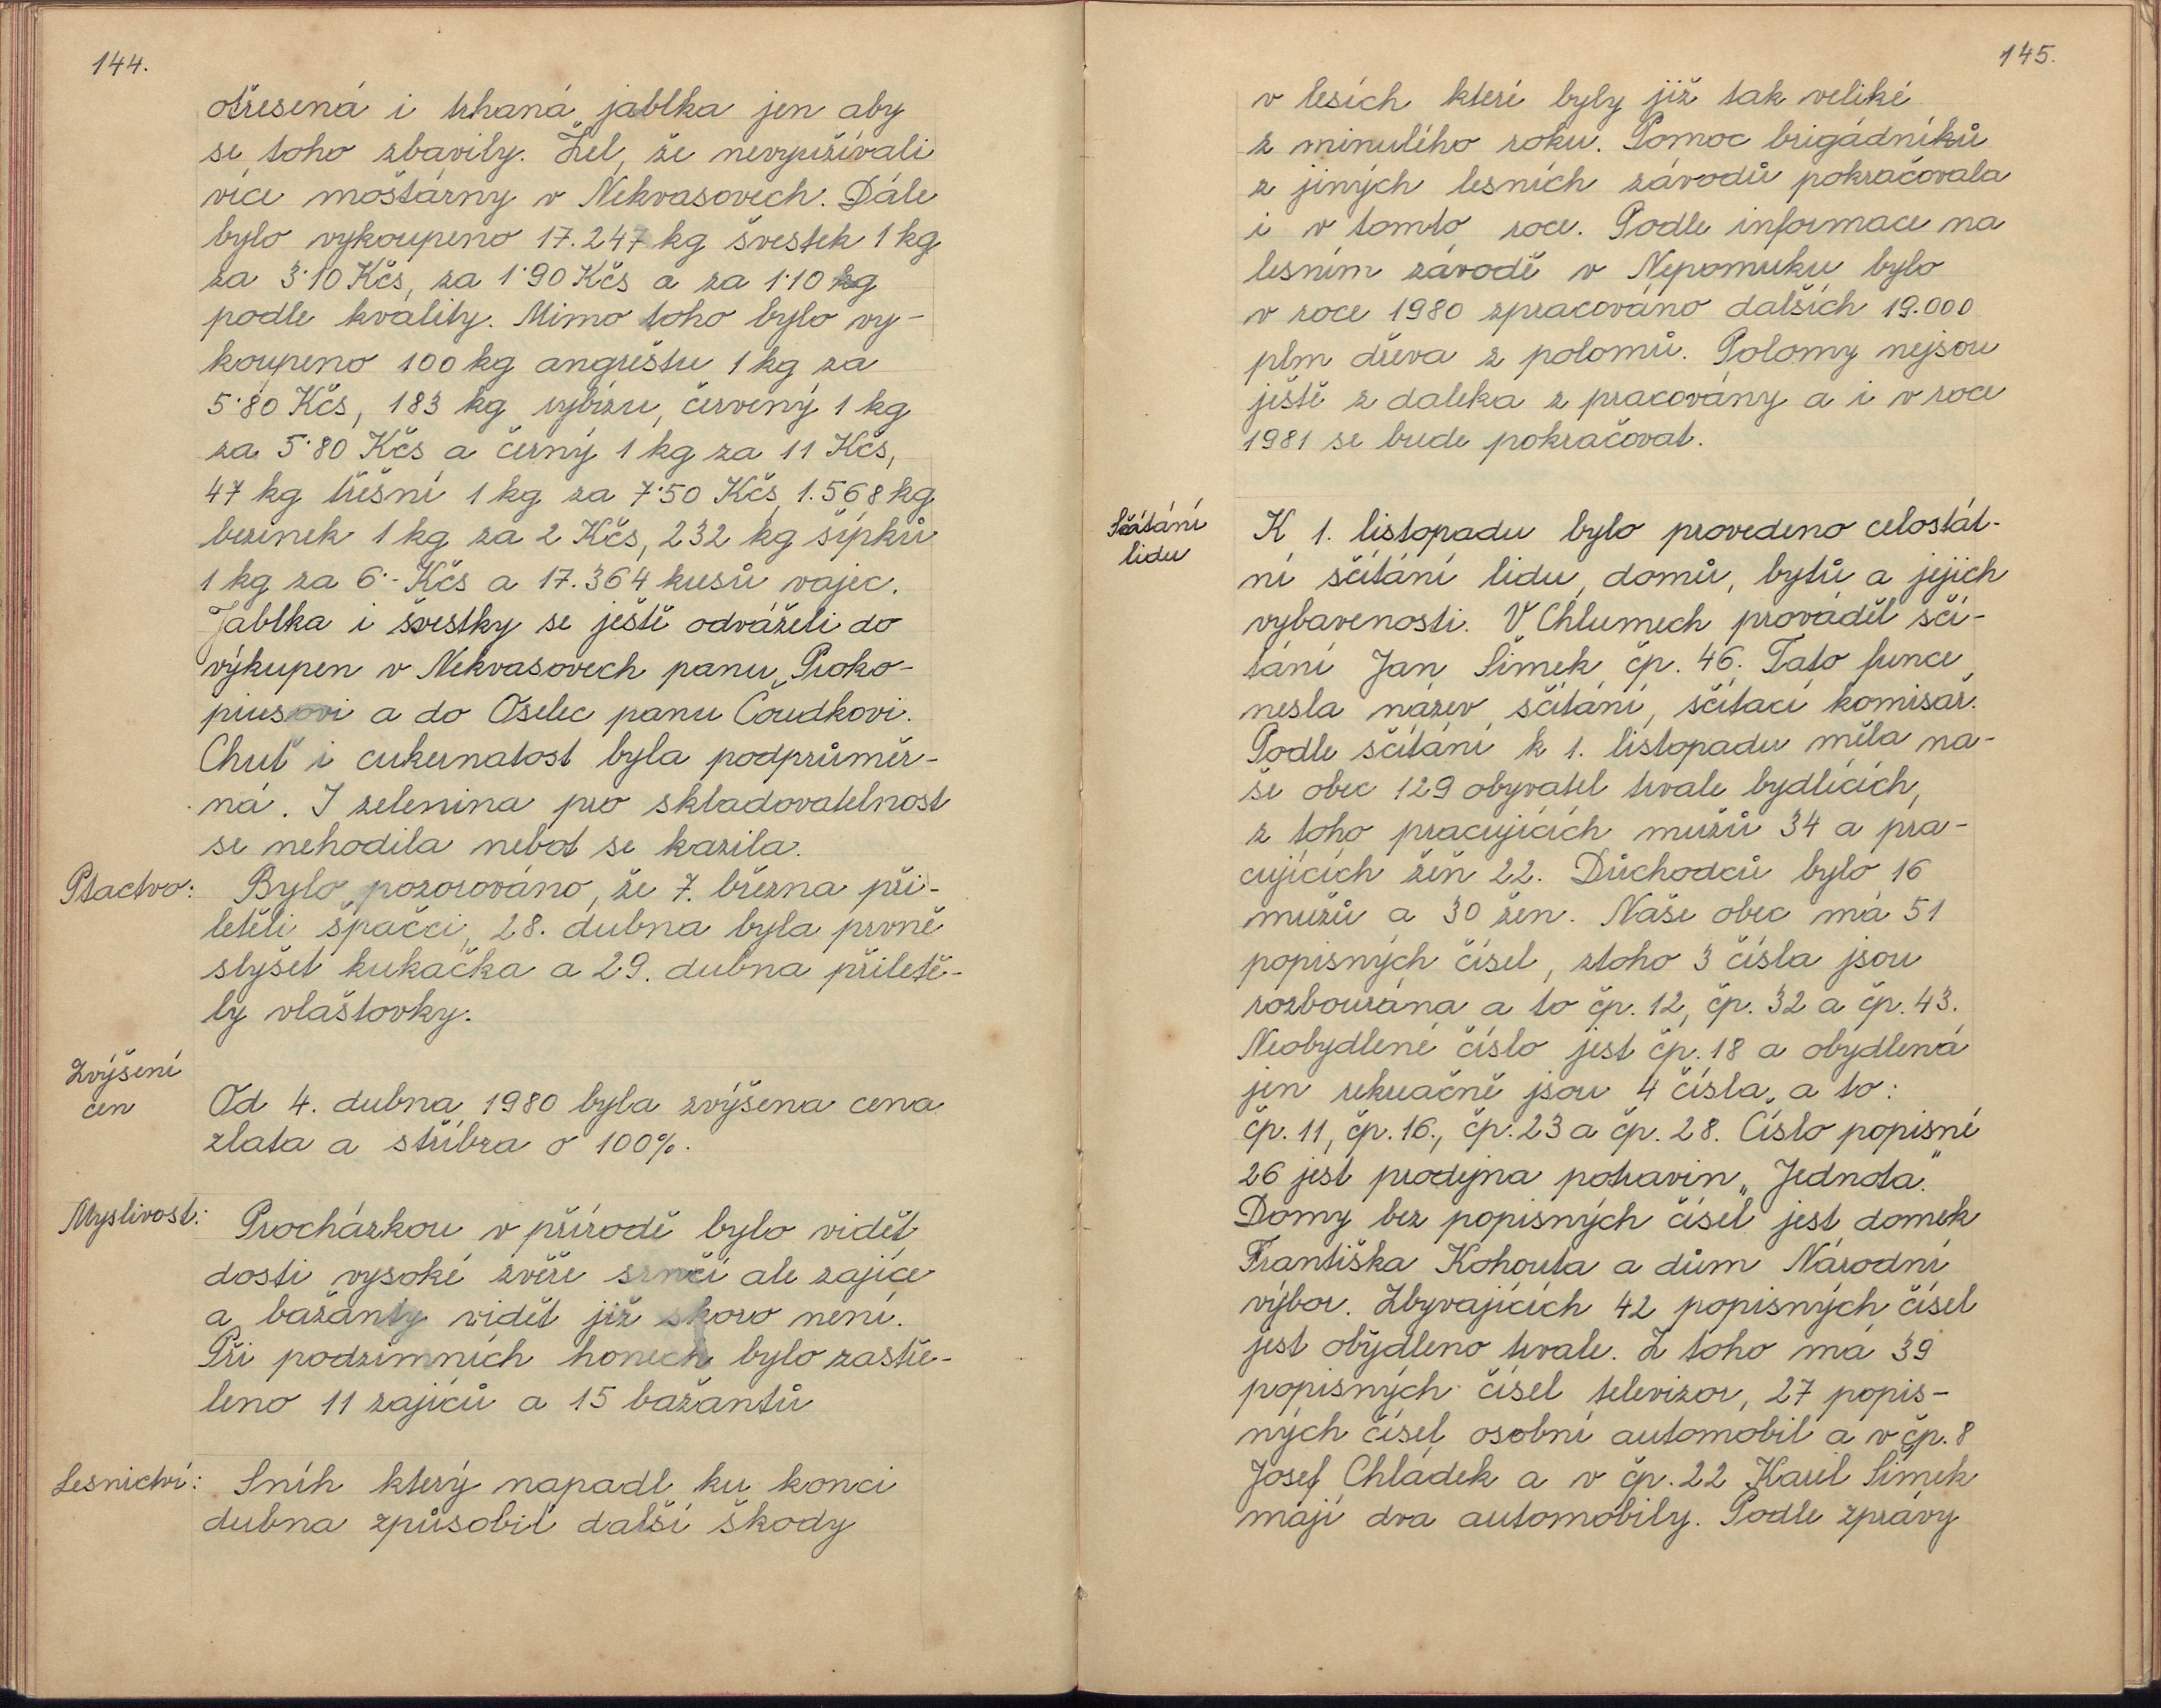 144.
otřesená i trhaná jablka jen aby
se toho zbavily. Žel, že nevyužívali
více moštárny v Nekvasovech. Dále
bylo vykoupeno 17.247 kg švestek 1 kg
za 3·10 Kčs, za 1·90 Kčs a za 1·10 kg
podle kvality. Mimo toho bylo vy-
koupeno 100 kg angreštu 1 kg za
5·80 Kčs, 183 kg rybízu, červený 1 kg
za 5·80 Kčs a černý 1 kg za 11 Kčs,
47 kg třešní 1 kg za 7·50 Kčs, 1.568 kg
bezinek 1 kg za 2 Kčs, 232 kg šípků
1 kg za 6·- Kčs a 17.364 kusů vajec.
Jablka i švestky se ještě odváželi do
výkupen v Nekvasovech panu Proko-
piusovi a do Oselec panu Čoudkovi.
Chuť i cukernatost byla podprůměr-
ná. I zelenina pro skladovatelnost
se nehodila nebot se kazila.
Ptactvo: Bylo pozorováno, že 7. března při-
letěli špačci, 28. dubna byla prvně
slyšet kukačka a 29. dubna přiletě-
ly vlaštovky.
Zvýšení
cen
Od 4. dubna 1980 byla zvýšena cena
zlata a stříbra o 100%.
Myslivost: Procházkou v přírodě bylo vidět
dosti vysoké zvěře srnčí ale zajíce
a bažanty vidět již skoro není.
Při podzimních honech bylo zastře-
leno 11 zajíců a 15 bažantů
Lesnictví: Sníh který napadl ku konci
dubna způsobil další škody
145.
v lesích které byly již tak veliké
z minulého roku. Pomoc brigádníků
z jiných lesních závodů pokračovala
i v tomto roce. Podle informace na
lesním závodě v Nepomuku bylo
v roce 1980 zpracováno dalších 19.000
plm dřeva z polomů. Polomy nejsou
ještě z daleka z pracovány a i v roce
1981 se bude pokračovat.
Sčítání
lidu
K 1. listopadu bylo provedeno celostát-
ní sčítání lidu, domů, bytů a jejich
vybavenosti. V Chlumech prováděl sčí-
tání Jan Šimek čp. 46. Tato funce
nesla název sčítání, sčítací komisař.
Podle sčítání k 1. listopadu měla na-
še obec 129 obyvatel trvale bydlících,
z toho pracujících mužů 34 a pra-
cujících žen 22. Důchodců bylo 16
mužů a 30 žen. Naše obec má 51
popisných čísel, ztoho 3 čísla jsou
rozbourána a to čp. 12, čp. 32 a čp. 43.
Neobydlené číslo jest čp. 18 a obydlená
jen rekreačně jsou 4 čísla, a to:
čp. 11, čp. 16., čp. 23 a čp. 28. Číslo popisné
26 jest prodejna potravin „Jednota."
Domy bez popisných čísel jest domek
Františka Kohouta a dům Národní
výbor. Zbyvajících 42 popisných čísel
jest obydleno trvale. Z toho má 39
popisných čísel televizor, 27 popis-
ných čísel osobní automobil a v čp. 8
Josef Chládek a v čp. 22 Karel Šimek
mají dva automobily. Podle zprávy